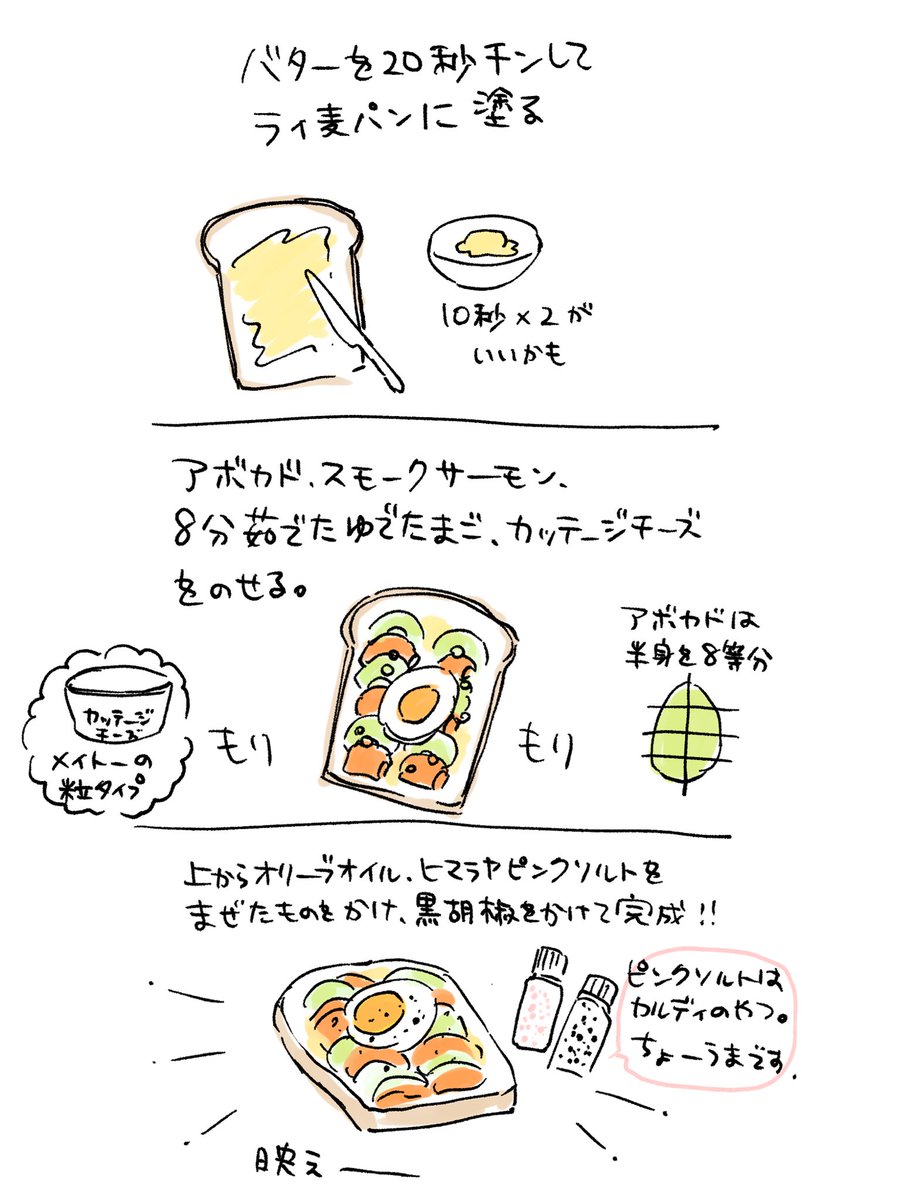 バターを20秒チンして
ライ麦パンに塗る
10秒×2が
いいかも
アボカド、スモークサーモン、
8分茹でたゆでたまご、カッテージチーズ
をのせる。
アボカドは
半身を8等分
カッテージ
チーズ
メイトーの
粒タイプ
もり
もり
上からオリーブオイル、ヒマラヤピンクソルトを
まぜたものをかけ、黒胡椒をかけて完成!!
ピンクソルトは
カルディのやつ。
ちょーうまです.
映え――